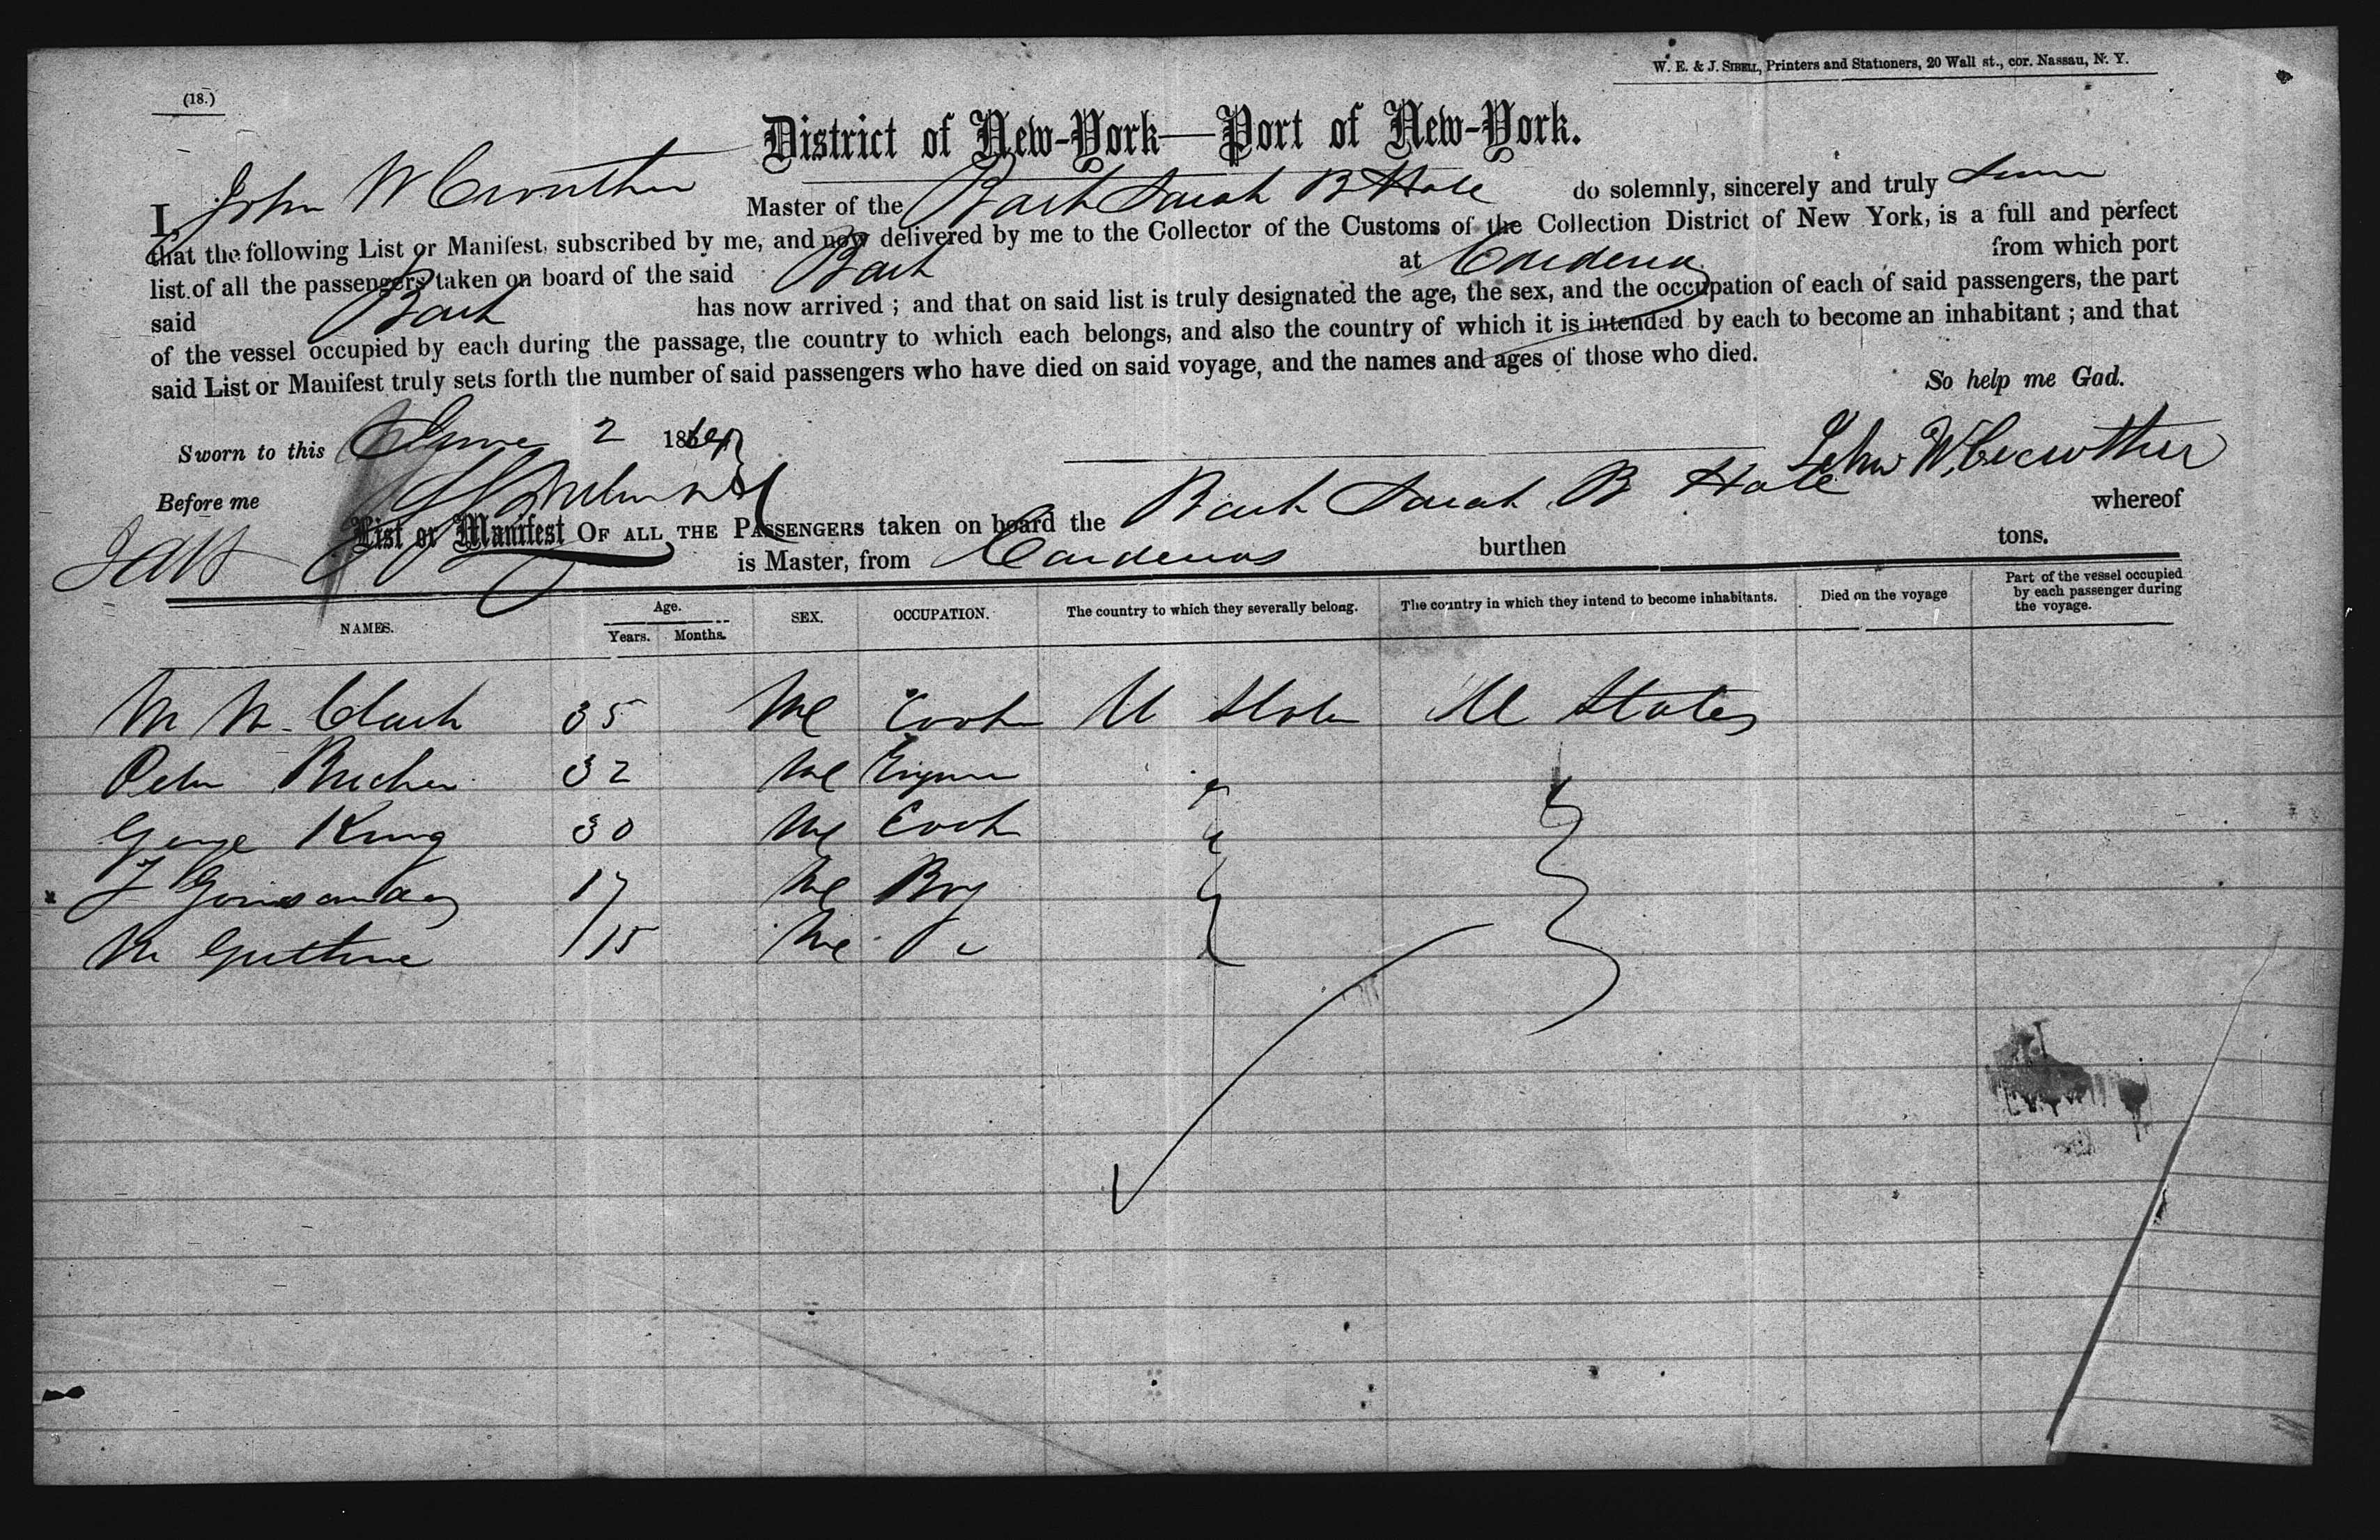 W. E. & J. SIBELL, Printers and Stationers, 20 Wall st., cor. Nassau, N. Y.
(18.)
District of New-York—Port of New-York.
I, John W Crowther Master of the Bark Sarah B Hale do solemnly, sincerely and truly
that the following List or Manifest, subscribed by me, and now delivered by me to the Collector of the Customs of the Collection District of New York, is a full and perfect
list of all the passengers taken on board of the said Bark at Cardenas from which port
said Bark has now arrived ; and that on said list is truly designated the age, the sex, and the occupation of each of said passengers, the part
of the vessel occupied by each during the passage, the country to which each belongs, and also the country of which it is intended by each to become an inhabitant ; and that
said List or Manifest truly sets forth the number of said passengers who have died on said voyage, and the names and ages of those who died.
So help me God.
Sworn to this June 2 186
John W. Crowther
Before me
List or Manifest OF ALL THE PASSENGERS taken on board the Bark Sarah B Hale whereof
is Master, from Cardenas burthen tons.
NAMES. Age. Years. Months. SEX. OCCUPATION. The country to which they severally belong. The country in which they intend to become inhabitants. Died on the voyage Part of the vessel occupied by each passenger during the voyage.
M N. Clark 35 Me Cook U States U States
32 Me
George King 30 Me Cook
J 17 Me Boy
M Guthrie 15 Me